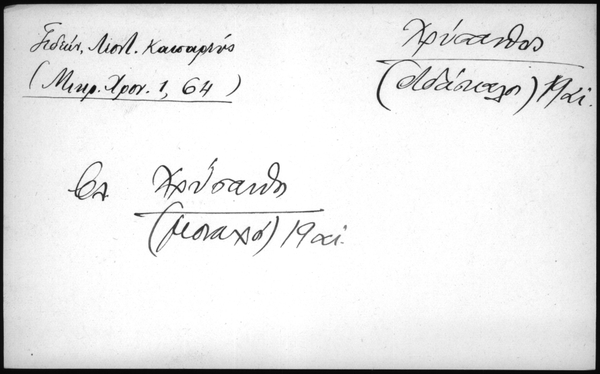 Γεδεών, Λεοντ. Καισαρεύς
(Μικρ. Χρον. 1, 64)
Χρύσανθος
(διδάσκαλος) 19 αἰ.
βλ Χρύσανθος
(μοναχός) 19 αἰ.